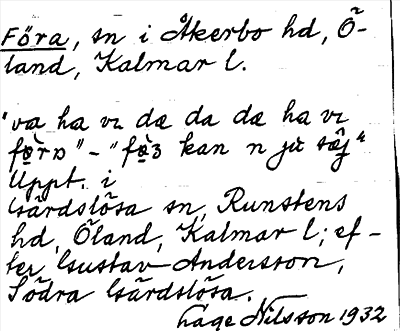 Föra, sn i Åkerbo hd, Ö-
land, Kalmar l.
"va ha vı dæ da dæ ha vı
fo̱rn" - "fo̱rz kan n ju säj"
Uppt. i
Gärdslösa sn, Runstens
hd, Öland, Kalmar l; ef-
ter Gustav Andersson,
Södra Gärdslösa.
Låge Nilsson 1932